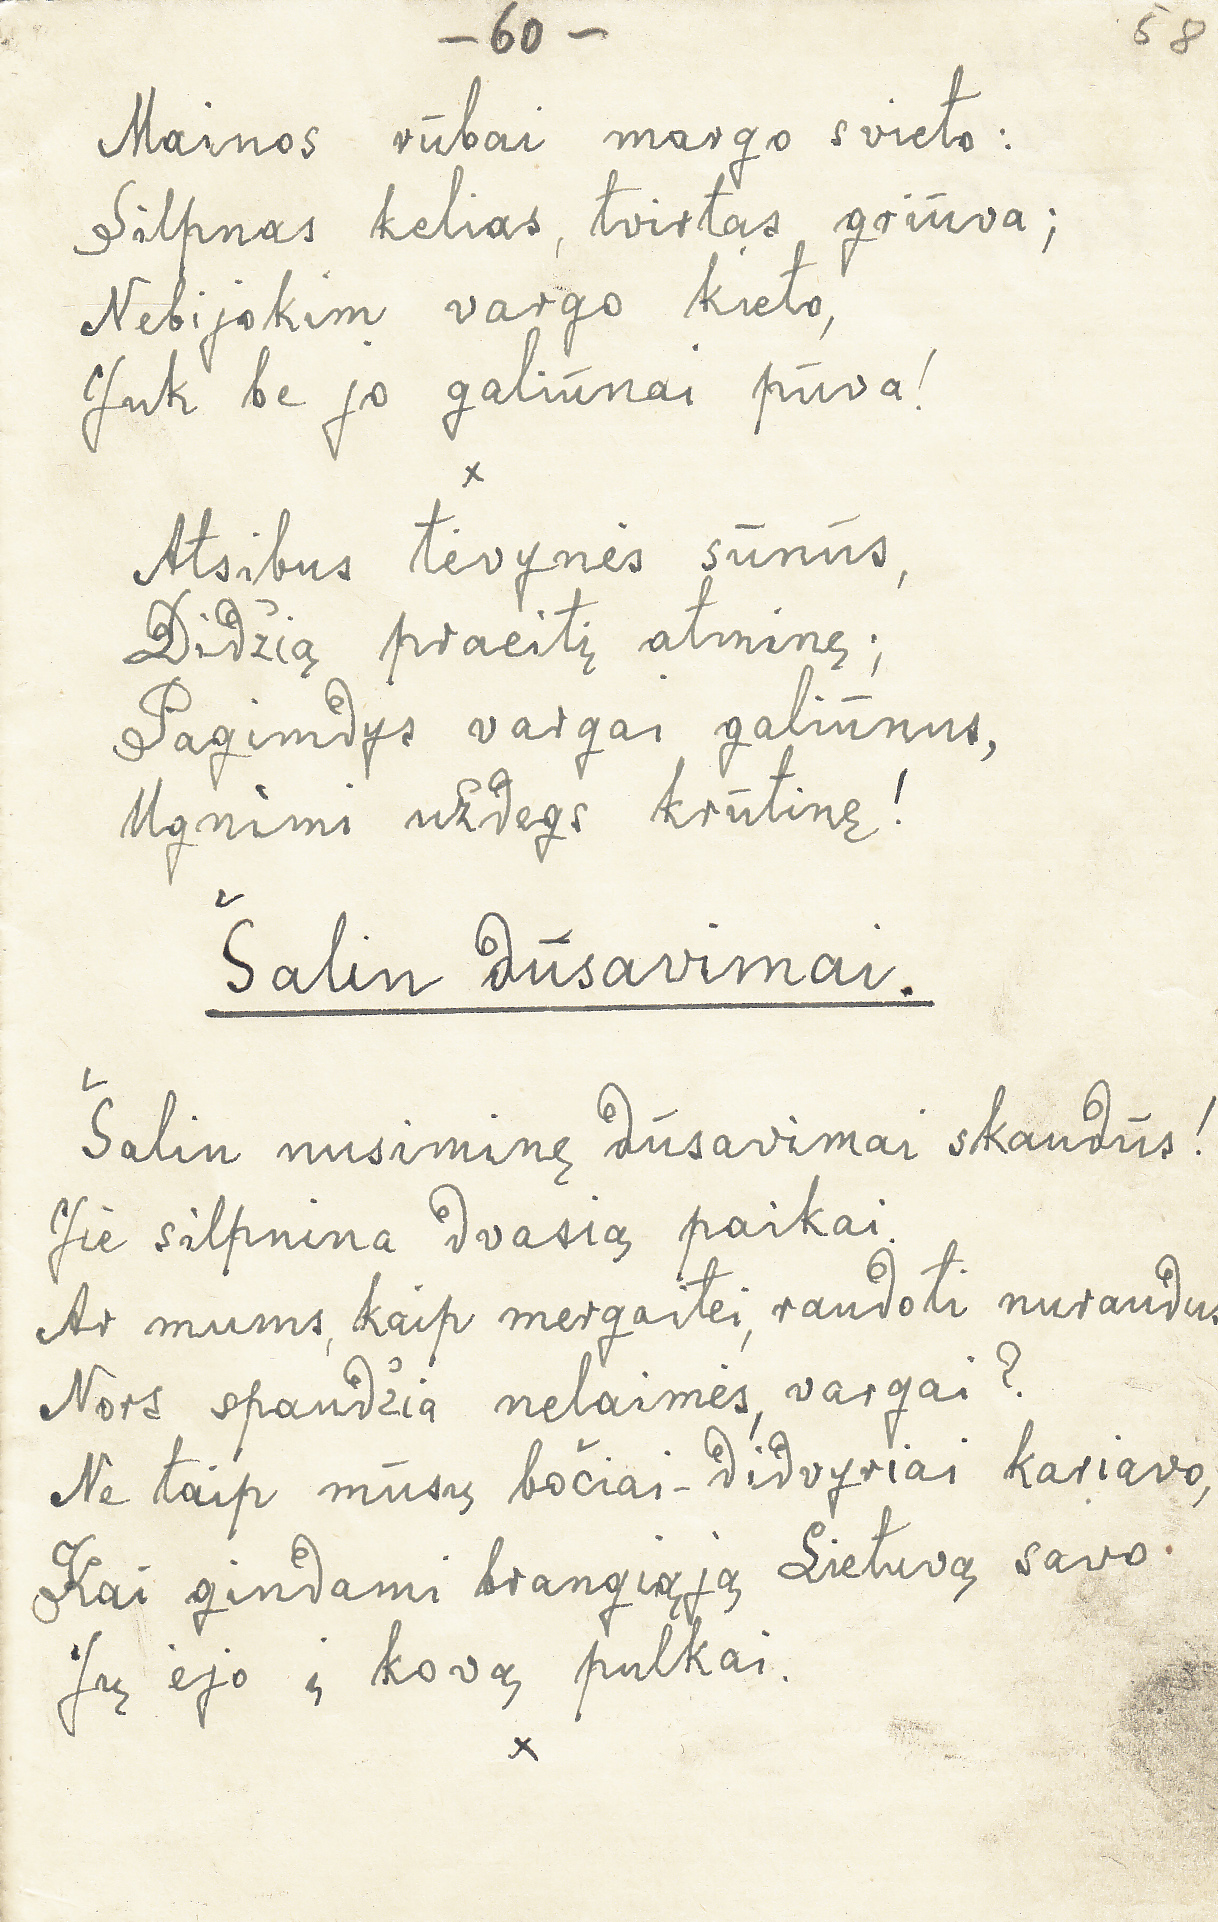 – 60 –
58
Mainos rūbai margo svieto:
Silpnas kelias, tvirtas griūva;
Nebijokim vargo kieto,
Juk be jo galiūnai pūva!
x
Atsibus tėvynės sūnūs,
Didžią praeitį atminę;
Pagimdys vargai galiūnus,
Ugnimi uždegs krūtinę!
Šalin dūsavimai.
Šalin nusiminę dūsavimai skaudūs!
Jie silpnina dvasią paikai.
Ar mums, kaip mergaitei, raudoti nuraudus
Nors spaudžia nelaimės, vargai?
Ne taip mūsų bočiai-didvyriai kariavo,
Kai gindami brangiąją Lietuvą savo
Jų ėjo į kovą pulkai.
x